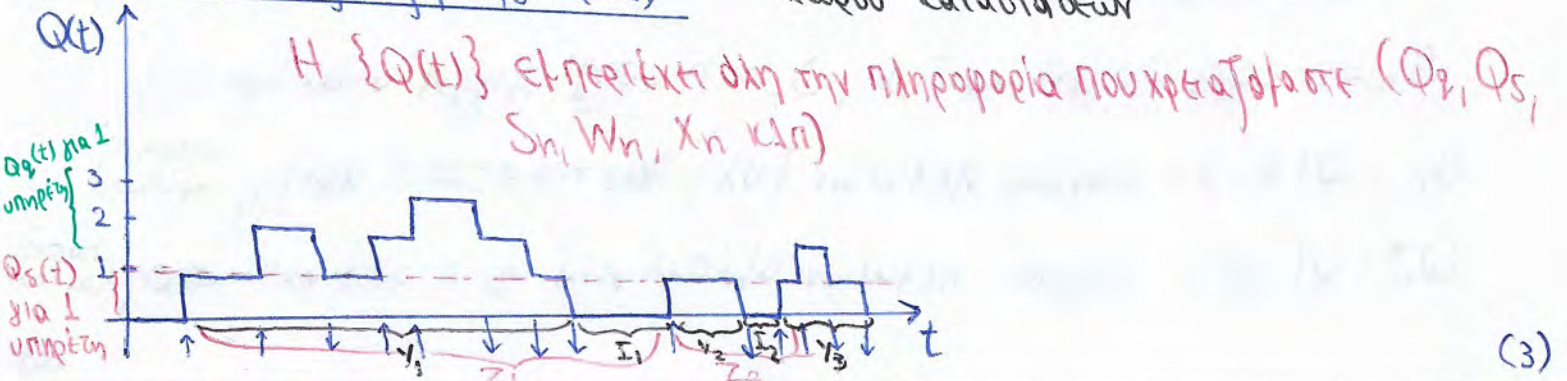 χώρου καταστάσεων
Q(t)
Η {Q(t)} εμπεριέχει όλη την πληροφορία που χρειαζόμαστε (Qq, Qs,
Sn, Wn, Xn κλπ)
Qq(t) για 1
υπηρέτη
3
2
1
Qs(t)
για 1
υπηρέτη
t
Y1 I1 Y2 I2 Y3
Z1 Z2
(3)